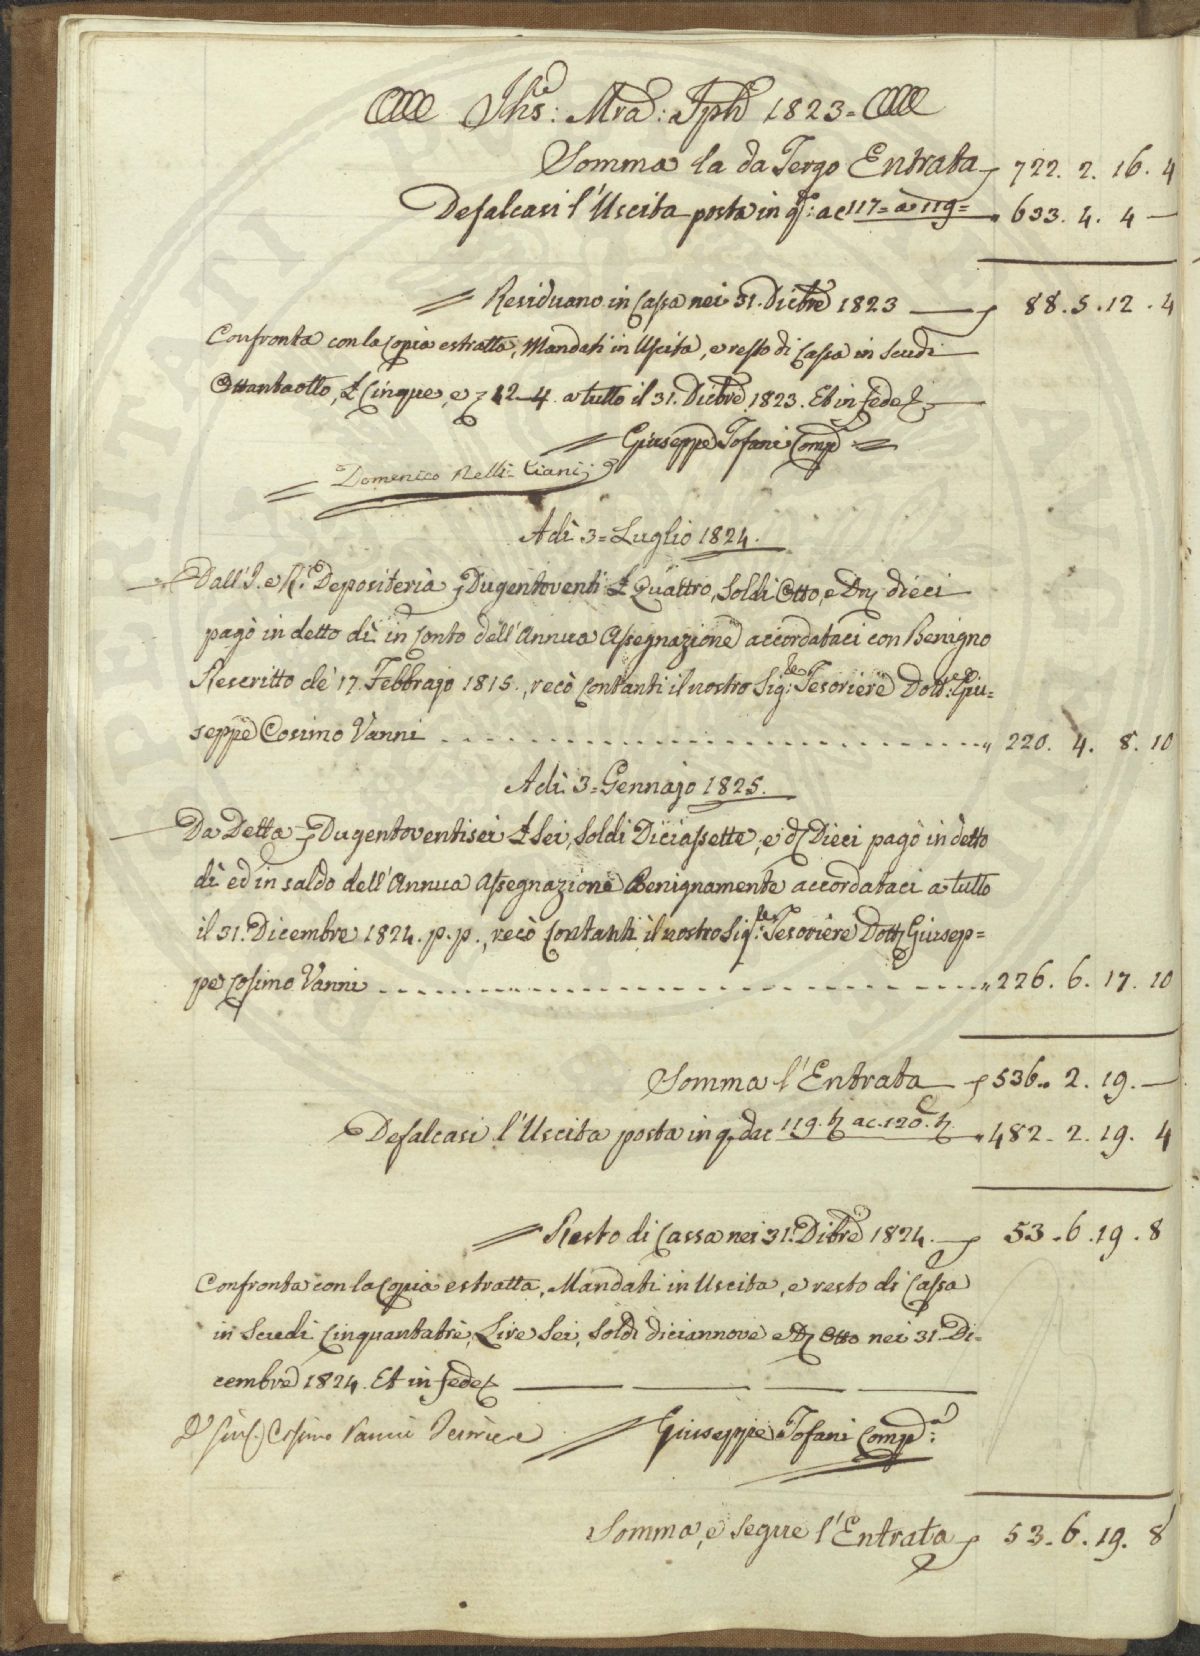 Jhs: Mra: Jph 1823=
Somma la da Tergo Entrata 722. 2. 16. 4
Defalcasi l'Uscita posta in q.: a c 117= a 119= " 633. 4. 4 —
Residuano in Cassa nei 31. Dicbre 1823 — 88. 5. 12. 4
Confronta con la Copia estratta, Mandati in Uscita, e resto di Cassa in Scudi
Ottantaotto, £ Cinque, e 12—4 a tutto il 31. Dicbre 1823. Et in fede
Giuseppe Tofani Comp.
Domenico Nelli-Ciani;
Adì 3= Luglio 1824.
Dall'I. e R. Depositeria Dugentoventi £ Quattro, Soldi Otto, e Dri dieci
pagò in detto dì in Conto dell'Annua Assegnazione accordataci con Benigno
Rescritto de' 17. Febbrajo 1815., recò Contanti il nostro Sig.re Tesoriere Dott.re Giu=
seppe Cosimo Vanni " 220. 4. 8. 10
Adì 3= Gennajo 1825.
Da Detta Dugentoventisei £ Sei, Soldi Diciassette, e d Dieci pagò in detto
dì ed in saldo dell'Annua Assegnazione Benignamente accordataci a tutto
il 31. Dicembre 1824. p. p., recò Contanti il nostro Sig.re Tesoriere Dott. Giusep=
pe Cosimo Vanni " 226. 6. 17. 10
Somma l'Entrata — 536. 2. 19. —
Defalcasi l'Uscita posta in q. da c 119. t. a c. 120. t. " 482. 2. 19. 4
Resto di Cassa nei 31. Dibre 1824. — 53. 6. 19. 8
Confronta con la Copia estratta, Mandati in Uscita, e resto di Cassa
in Scudi Cinquantatrè, Lire Sei, Soldi diciannove e D Otto nei 31. Di=
cembre 1824. Et in fede
Dr Gius. Cosimo Vanni Tesoriere
Giuseppe Tofani Comp.:
Somma, e segue l'Entrata 53. 6. 19. 8